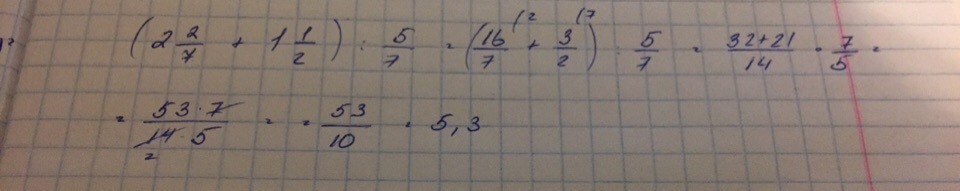 (2 2/7 + 1 1/2) : 5/7 = (16/7 (2 + 3/2 (7) : 5/7 = 32+21/14 · 7/5 =
= 53·7/14·5 2 = = 53/10 = 5,3